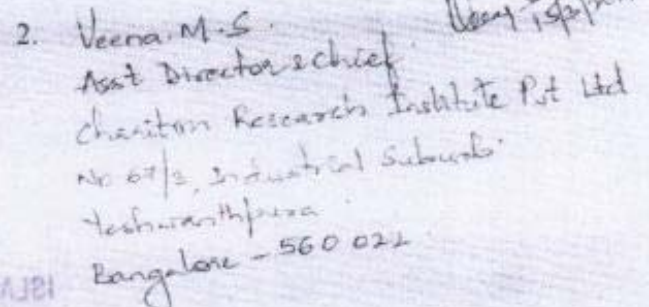 2. Veena. M.S.
Asst Director & chief
Research Institute Pvt Ltd
No 67/2, Industrial Suburb
Yeshwanthpura
Bangalore - 560 022